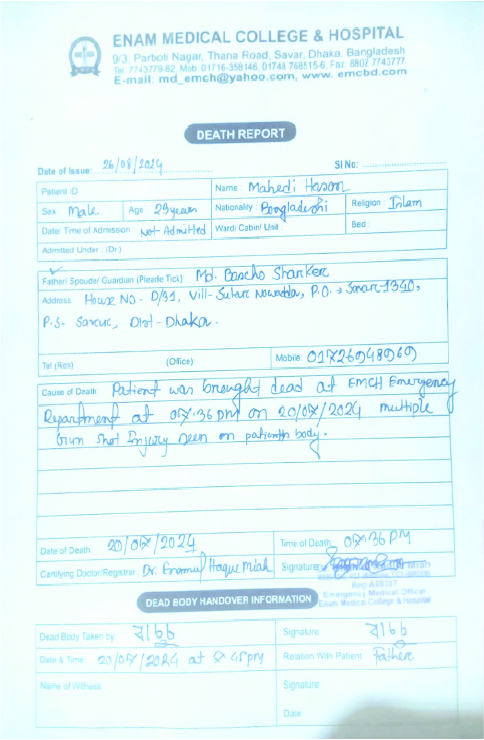 ENAM MEDICAL COLLEGE & HOSPITAL
9/3, Parboti Nagar, Thana Road, Savar, Dhaka, Bangladesh
Tel: 7743779-82, Mob: 01716-358146, 01748 768515-6, Fax: 8802 7743777
E-mail: md_emch@yahoo.com, www. emcbd.com
DEATH REPORT
Date of Issue: 26/08/2024 Sl No:
Patient ID Name: Mahedi Hasan
Sex: Male Age: 29 years Nationality Bongladeshi Religion: Islam
Date/ Time of Admission: Not Admitted Ward/ Cabin/ Unit Bed:
Admitted Under : (Dr.)
Father/ Spoude/ Guardian (Pleade Tick) Md. Bascho Sharker
Address: House NO- D/31, Vill- P.O. → Savar-1340,
P.S- Savar, Dist- Dhaka.
Tel (Res) (Office) Mobile: 01726948969
Cause of Death: Patient was brought dead at EMCH Emergency
Department at 07:36 pm on 20/07/2024 multiple
Gun shot Injury seen on patients body.
Date of Death: 20/07/2024 Time of Death: 07:36 PM
Certifying Doctor/Registrar: Dr. Enamul Haque Miah Signature:
Emergency Medical Officer
Enam Medical College & Hospital
DEAD BODY HANDOVER INFORMATION
Dead Body Taken by: Signature:
Date & Time: 20/07/2024 at 8:45pm Relation With Patient: Father
Name of Witness: Signature:
Date: